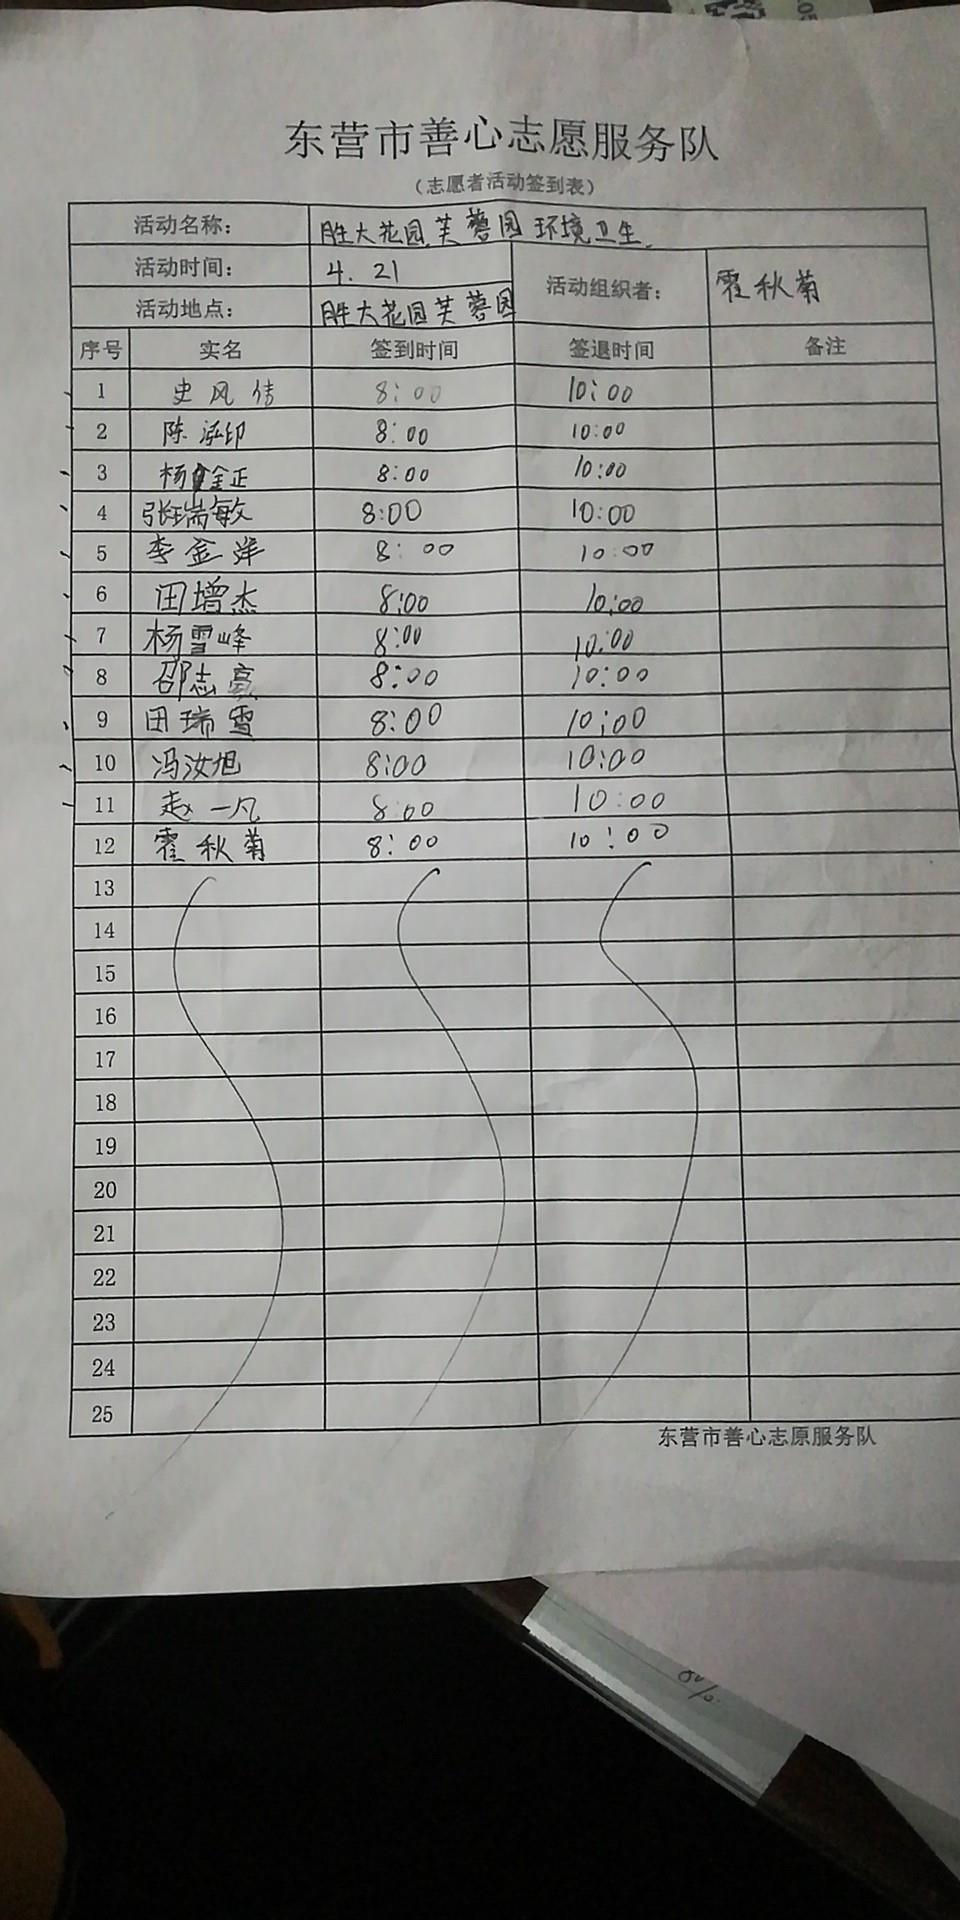 东营市善心志愿服务队
（志愿者活动签到表）
活动名称： 胜大花园芙蓉园环境卫生
活动时间： 4.21 活动组织者： 霍秋菊
活动地点： 胜大花园芙蓉园
序号 实名 签到时间 签退时间 备注
1 史风倩 8:00 10:00
2 陈泓印 8:00 10:00
3 杨金正 8:00 10:00
4 张瑞敏 8:00 10:00
5 李金洋 8:00 10:00
6 田增杰 8:00 10:00
7 杨雪峰 8:00 10:00
8 邵志豪 8:00 10:00
9 田瑞雪 8:00 10:00
10 冯汝旭 8:00 10:00
11 赵一凡 8:00 10:00
12 霍秋菊 8:00 10:00
13
14
15
16
17
18
19
20
21
22
23
24
25
东营市善心志愿服务队